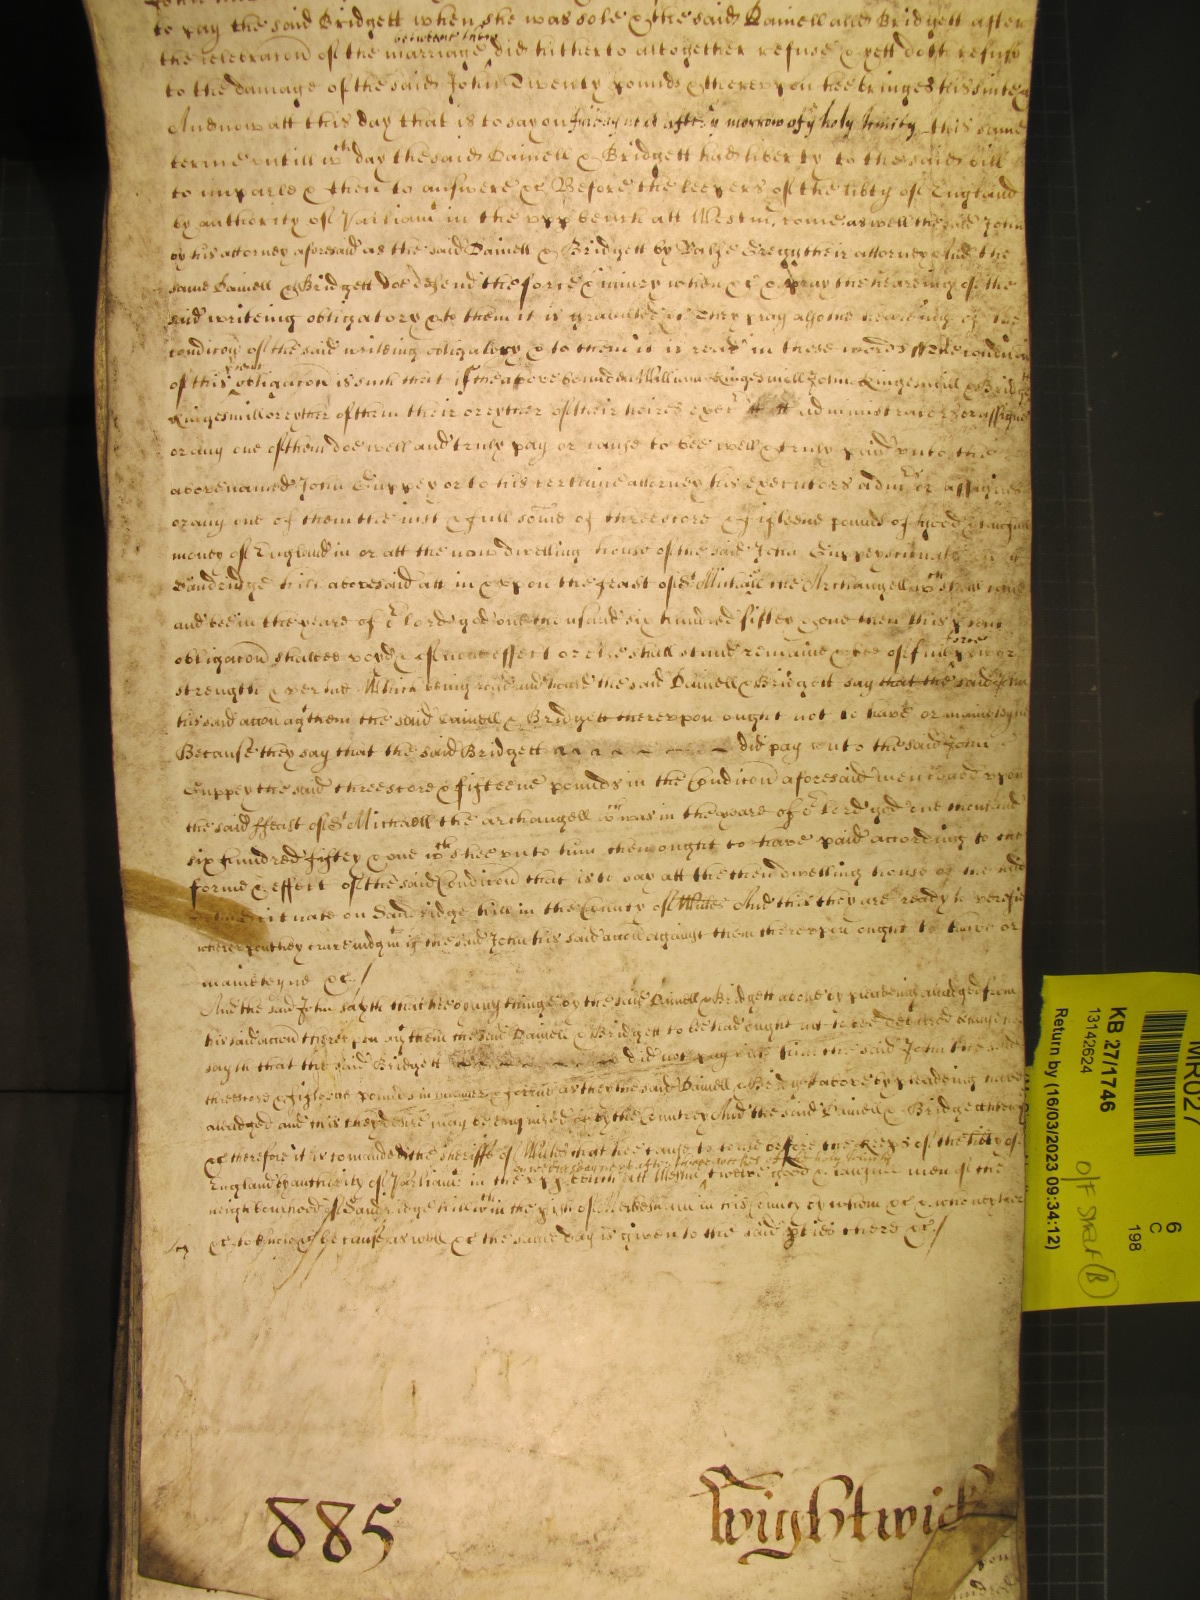 to pay the said Bridgett when she was sole & the said Daniell and Bridgett after
betweene them
the celebracon of the marriage did hitherto altogether refuse & yett doth refuse
to the damage of the said John Twenty pounds & thereupon hee bringes his suite &c
And now att this day that is to say on friday next after ye morrow of ye holy trinity this same
terme untill wch day the said Daniell & Bridgett had liberty to the said bill
to imparle & then to answere &c Before the keepers of the libty of England
by authority of Parliamt in the upp bench att Westm, come as well the said John
by his attorney aforesaid as the said Daniell & Bridgett by their attorney And the
same Daniell & Bridgett doe defend the force & iniury when &c & pray the heareing of the
said writeing obligatory & to them it is graunted &c They pray also the heareing of the
condicon of the said writeing obligatory & to them it is read in these words The condicon
of this obligacon is such that if the above bounden William Kingesmill John Kingesmill & Bridgett
Kingesmill or eyther of them their or eyther of their heires exec administrators or assignes
or any one of them doe well and truly pay or cause to bee well & truly paid unto the
abovenamed John Guppey or to his certeine attorney his executors admrs or assignes
or any one of them the iust & full some of threescore & fifteene pounds of good & lawfull
money of England in or att the now dwelling house of the said John Guppey scituate
Sandridge hill aforesaid att in & upon the feast of St Michaell the Archangell wch shall come
and bee in the yeare of or lord god one thousand six hundred fiftey & one then this
obligacon shalbee voyd & of none effect or else shall stand remaine & bee of full power
force
strength & vertue Which being read and heard the said Daniell & Bridgett say that the said John
his said accon agt them the said Daniell & Bridgett thereupon ought not to have or mainteyne
Because they say that the said Bridgett did pay unto the said John
Guppey the said threescore & fifteene pounds in the Condicon aforesaid menconed upon
the said ffeast of St Michaell the archangell wch was in the yeare of or lord god one thousand
six hundred fiftey & one wch shee unto him then ought to have paid according to the
forme & effect of the said Condicon that is to say att the then dwelling house of the said
scituate on Sandridge hill in the County of Wiltes And this they are ready to verifie
whereupon they crave iudgmt if the said John his said accon against them thereupon ought to have or
mainteyne &c /
And the said John sayth that hee by any thinge by the said Daniell & Bridgett above by pleadeing alleadged from
his said accon thereupon agt them the said Daniell & Bridgett to be had ought not to bee debarred because hee
sayth that the said Bridgett did not pay unto him the said John the said
threescore & fifteene pounds in manner & forme as they the said Daniell & Bridgett above by pleadeing have
alleadged and this they desire may be enquired of by the Countrey And the said Daniell & Bridgett
&c therefore it is comanded the sheriffe of Wiltes that hee cause to come before the keeps of the libty of
England by authority of Parliamt in the upp bench att Westm twelve good & lawfull men of the
neighbourhood of Sandridge hill wthin the pish of Melkesham in his County by whom &c & who neyther
&c to Enquire because as well &c the same day is given to the said pties there &c /
885
Wightwick
MR027
KB 27/1746
13142624
Return by (16/03/2023 09:34:12)
6
C
198
O/F SHELF (B)